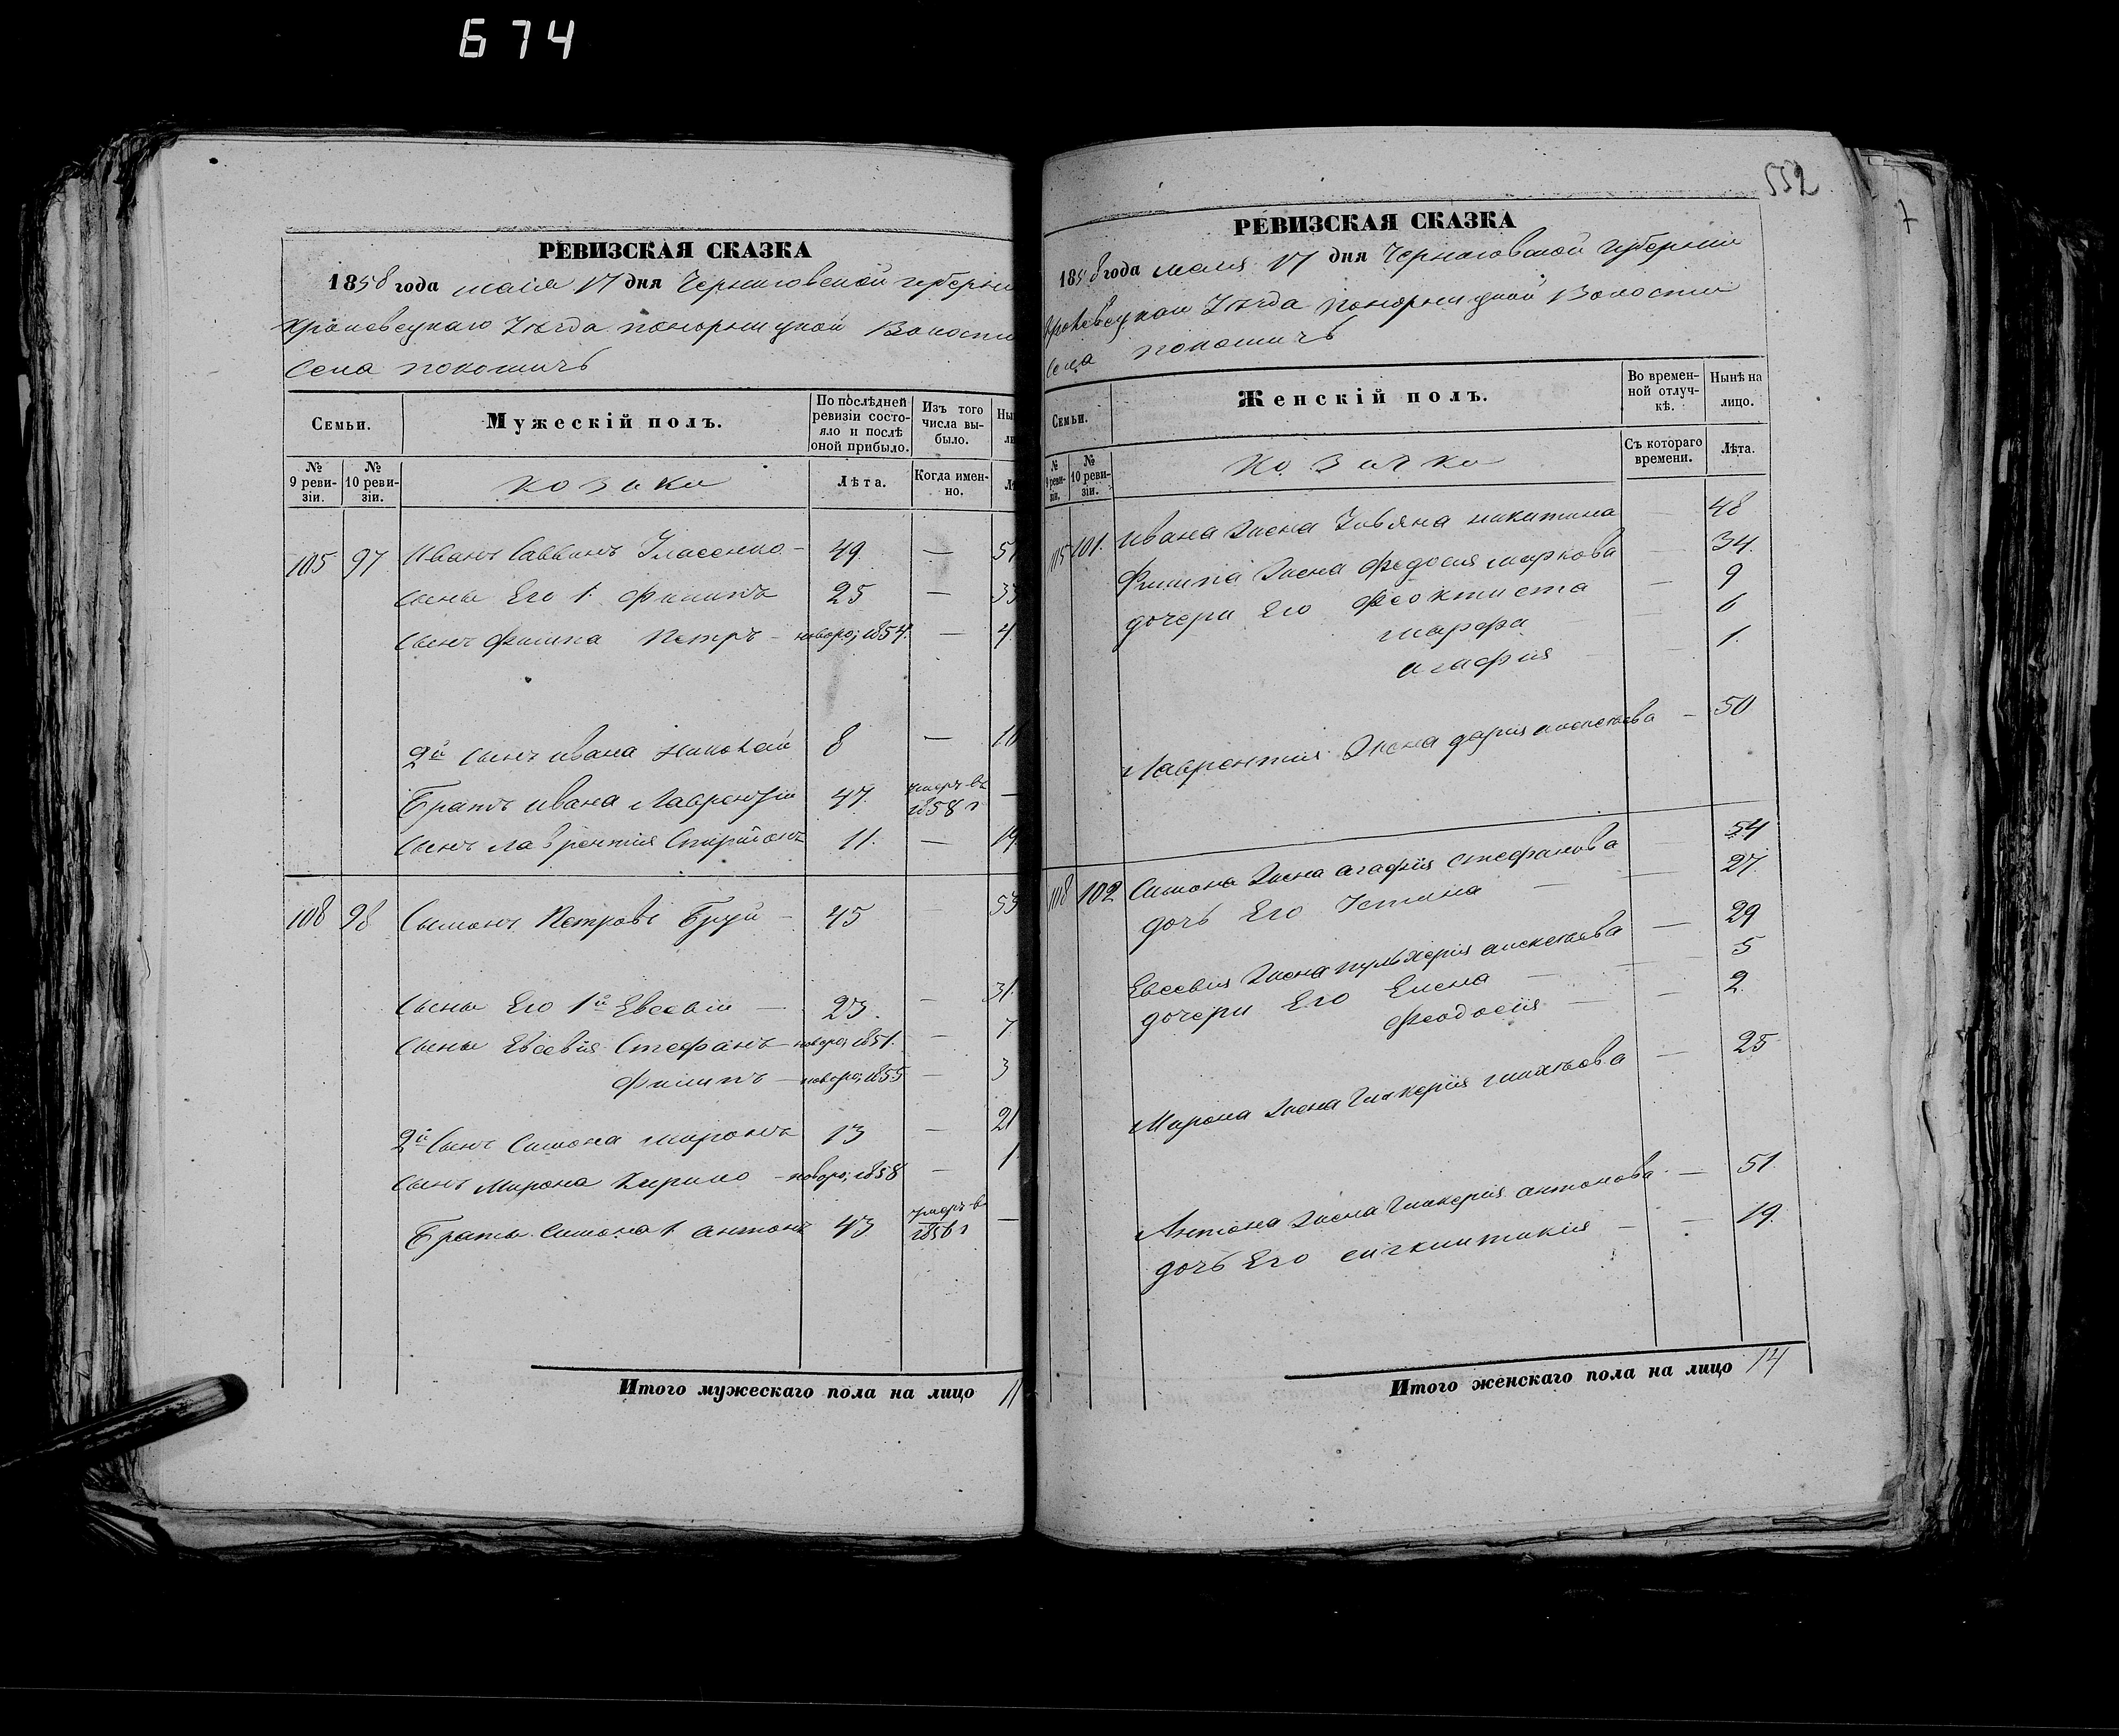 674
РЕВИЗСКАЯ СКАЗКА
1858 года маія 17 дня Черниговской губерни
Кролевецкаго Уѣзда понорницкой Волости
Села покошичь
Семьи.
Мужескій полъ.
По послѣдней ревизіи состояло и послѣ оной прибыло.
Изъ того числа выбыло.
Ны
ли
№ 9 ревизіи.
№ 10 ревизіи.
козаки
Лѣта.
Когда именно.
Лѣ
105 97 Иванъ Саввинъ Уласенко 49 — 51
Сыны Его 1. Филипъ 25 — 33
Сынъ Филипа Петръ новоро; 1854 — 4
2й Сынъ ивана Николай 8 — 10
Братъ ивана Лаврентій 47 умеръ въ 1858 г —
Сынъ лаврентія Спиридонъ 11. — 19
108 98 Симонъ Петровъ Бруй 45 — 53
Сыны Его 1й Евсевій — 23. — 31.
Сыны Евсевія Стефанъ новоро; 1851. — 7
Филипъ — новоро; 1855 — 3
2й Сынъ Симона миронъ 13 — 21
Сынъ Мирона Кирило — новоро; 1858 — 1
Браты Симона 1 антонъ 43 умеръ в 1856 г —
Итого мужескаго пола на лицо 11
552
7
РЕВИЗСКАЯ СКАЗКА
1858 года маія 17 дня Черниговской губерніи
кролевецкаго Уѣзда понорницкой Волости
Села покошичь
Семьи.
Женскій полъ.
Во временной отлучкѣ.
Нынѣ на лицо.
№ 9 ревизіи.
№ 10 ревизіи.
козачки
Съ котораго времени.
Лѣта.
105 101. ивана жена Ульяна никитина — 48
Филипа жена федосия маркова — 34.
дочери Его Феоктиста — 9
марфа 6
агафия — 1.
Лаврентия жена дария алексѣева — 50
108 102 Симона жена агафия Стефанова — 54
дочь Его Устина — 27.
Евсевия жена пульхерия алексѣева — 29
дочери Его Елена — 5
Феодосия — 2.
Мирона жена Гликерия михѣева — 25
Антона жена Гликерия антонова — 51
дочь Его синклитикия — 19.
Итого женскаго пола на лицо 14